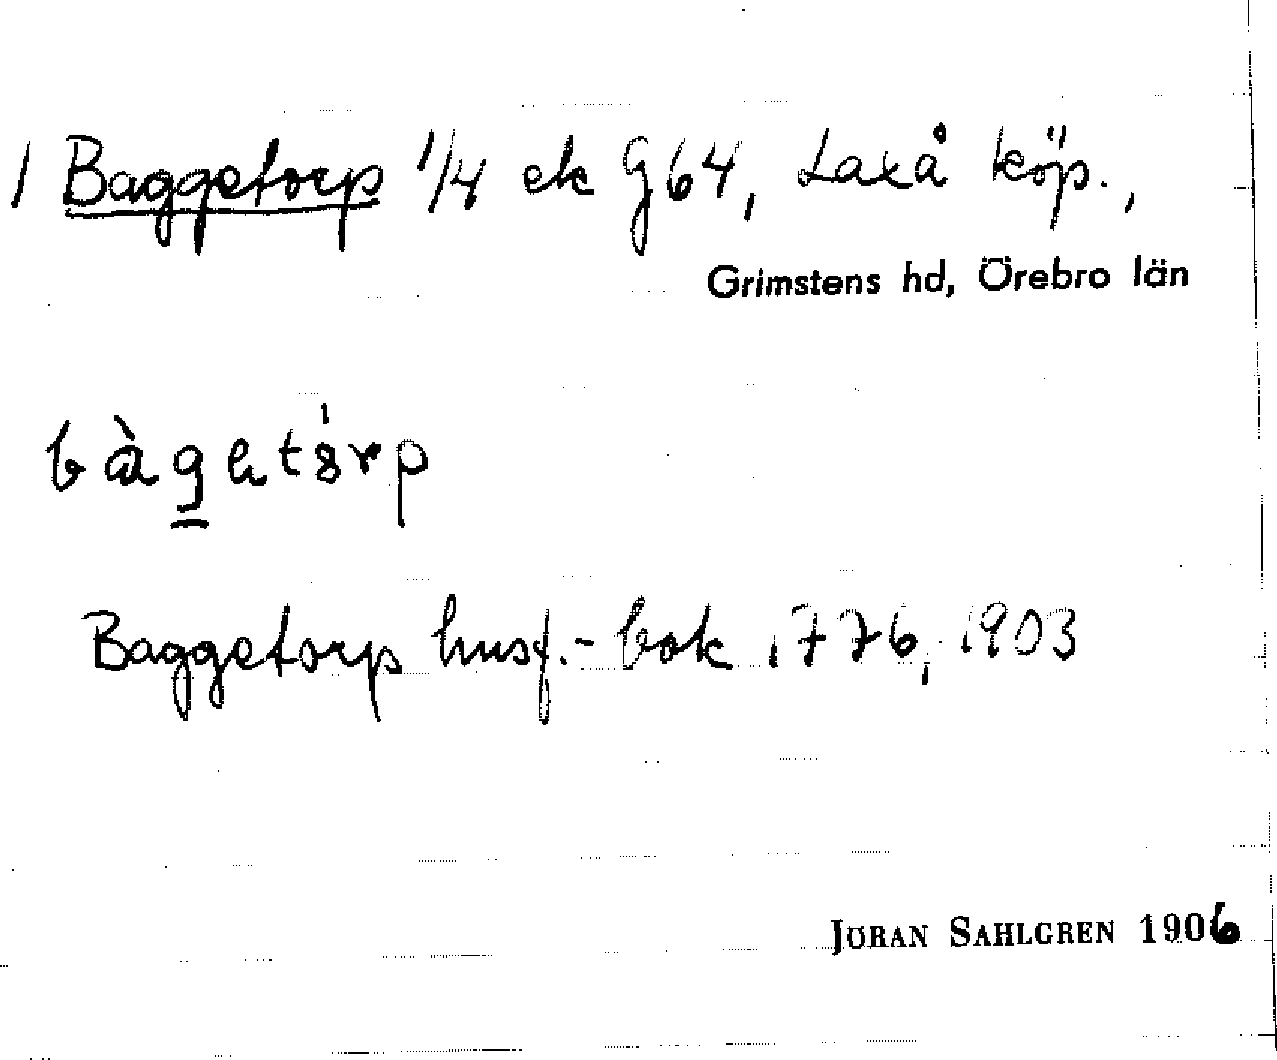 1 Baggetorp 1/4 ek G64, Laxå köp.,
Grimstens hd, Örebro län
Baggetorp husf.-bok 1776, 1903
JÖRAN SAHLGREN 1906